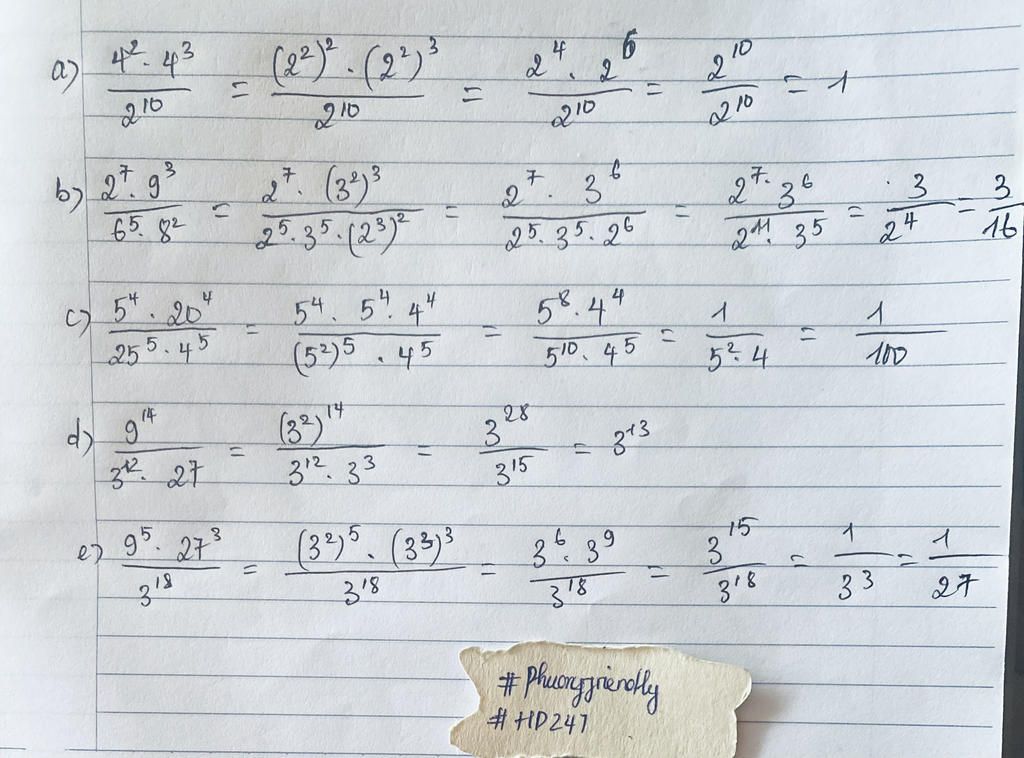 a) \frac{4^2 \cdot 4^3}{2^{10}} = \frac{(2^2)^2 \cdot (2^2)^3}{2^{10}} = \frac{2^4 \cdot 2^6}{2^{10}} = \frac{2^{10}}{2^{10}} = 1
b) \frac{2^7 \cdot 9^3}{6^5 \cdot 8^2} = \frac{2^7 \cdot (3^2)^3}{2^5 \cdot 3^5 \cdot (2^3)^2} = \frac{2^7 \cdot 3^6}{2^5 \cdot 3^5 \cdot 2^6} = \frac{2^7 \cdot 3^6}{2^{11} \cdot 3^5} = \frac{3}{2^4} = \frac{3}{16}
c) \frac{5^4 \cdot 20^4}{25^5 \cdot 4^5} = \frac{5^4 \cdot 5^4 \cdot 4^4}{(5^2)^5 \cdot 4^5} = \frac{5^8 \cdot 4^4}{5^{10} \cdot 4^5} = \frac{1}{5^2 \cdot 4} = \frac{1}{100}
d) \frac{9^{14}}{3^{12} \cdot 27} = \frac{(3^2)^{14}}{3^{12} \cdot 3^3} = \frac{3^{28}}{3^{15}} = 3^{13}
e) \frac{9^5 \cdot 27^3}{3^{18}} = \frac{(3^2)^5 \cdot (3^3)^3}{3^{18}} = \frac{3^6 \cdot 3^9}{3^{18}} = \frac{3^{15}}{3^{18}} = \frac{1}{3^3} = \frac{1}{27}
# Phuongfriendly
# HD247